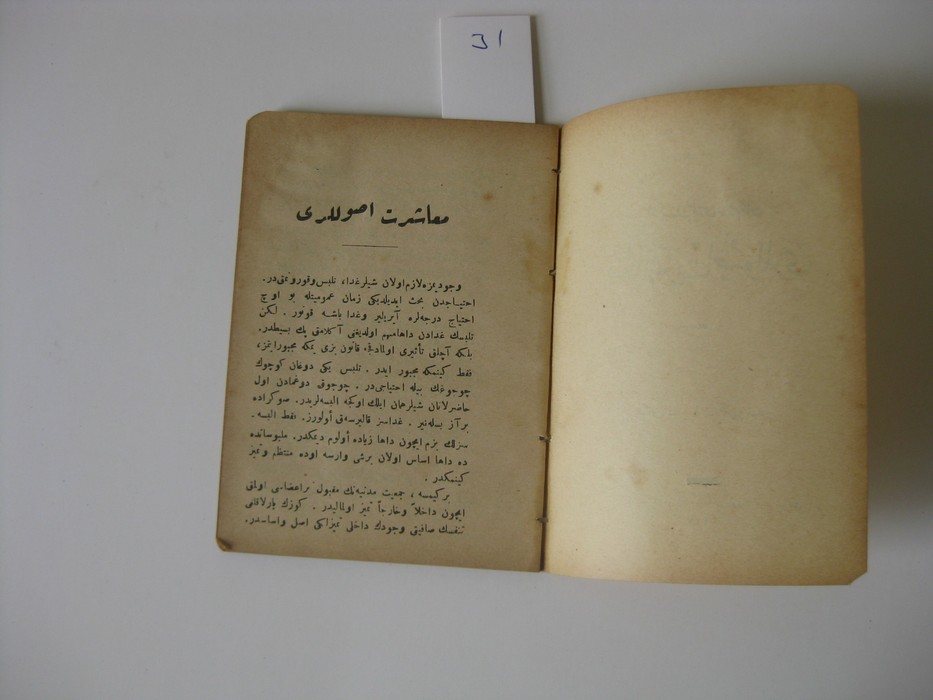 31
معاشرت اصوللری
وجودیمزه لازم اولان شیلر غدا، تلبس وقورونمتی در.
احتیاجدن بحث ایدیلدیکی زمان عمومیتله بو اوچ
احتیاج درجه‌لره آیریلیر وغدا باشه قونور . لکن
تلبسك غدادن داها مهم اولدیغنی آکلامق پك بسیطدر.
بلکه آچلق تأثیری اولمادقجه قانون بزی یمکه مجبور ایتمز،
فقط کیینمکه مجبور ایدر . تلبس یکی دوغان کوچوك
چوجوغك بیله احتیاجی در . چوجوق دوغمادن اول
حاضرلانان شیلر همان ایلك اوکجه البسه‌لریدر. صوکراده
بر آز بسله‌نیر . غداسز قالیرسه‌ق أولورز. فقط البسه-
سزلك بزم ایچون داها زیاده أولوم دیمکدر. ملبوساتده
ده داها اساس اولان برشی وارسه اوده منتظم وتمیز
کیینمکدر .
بر کیمسه ، جمعیت مدنیه‌نك مقبول بر اعضاسی اولمق
ایچون داخلاً وخارجاً تمیز اولمالیدر . کوزك پارلاقلغی
تنفسك صافیتی وجودك داخلی تمیزلکی اصل واساسدر.